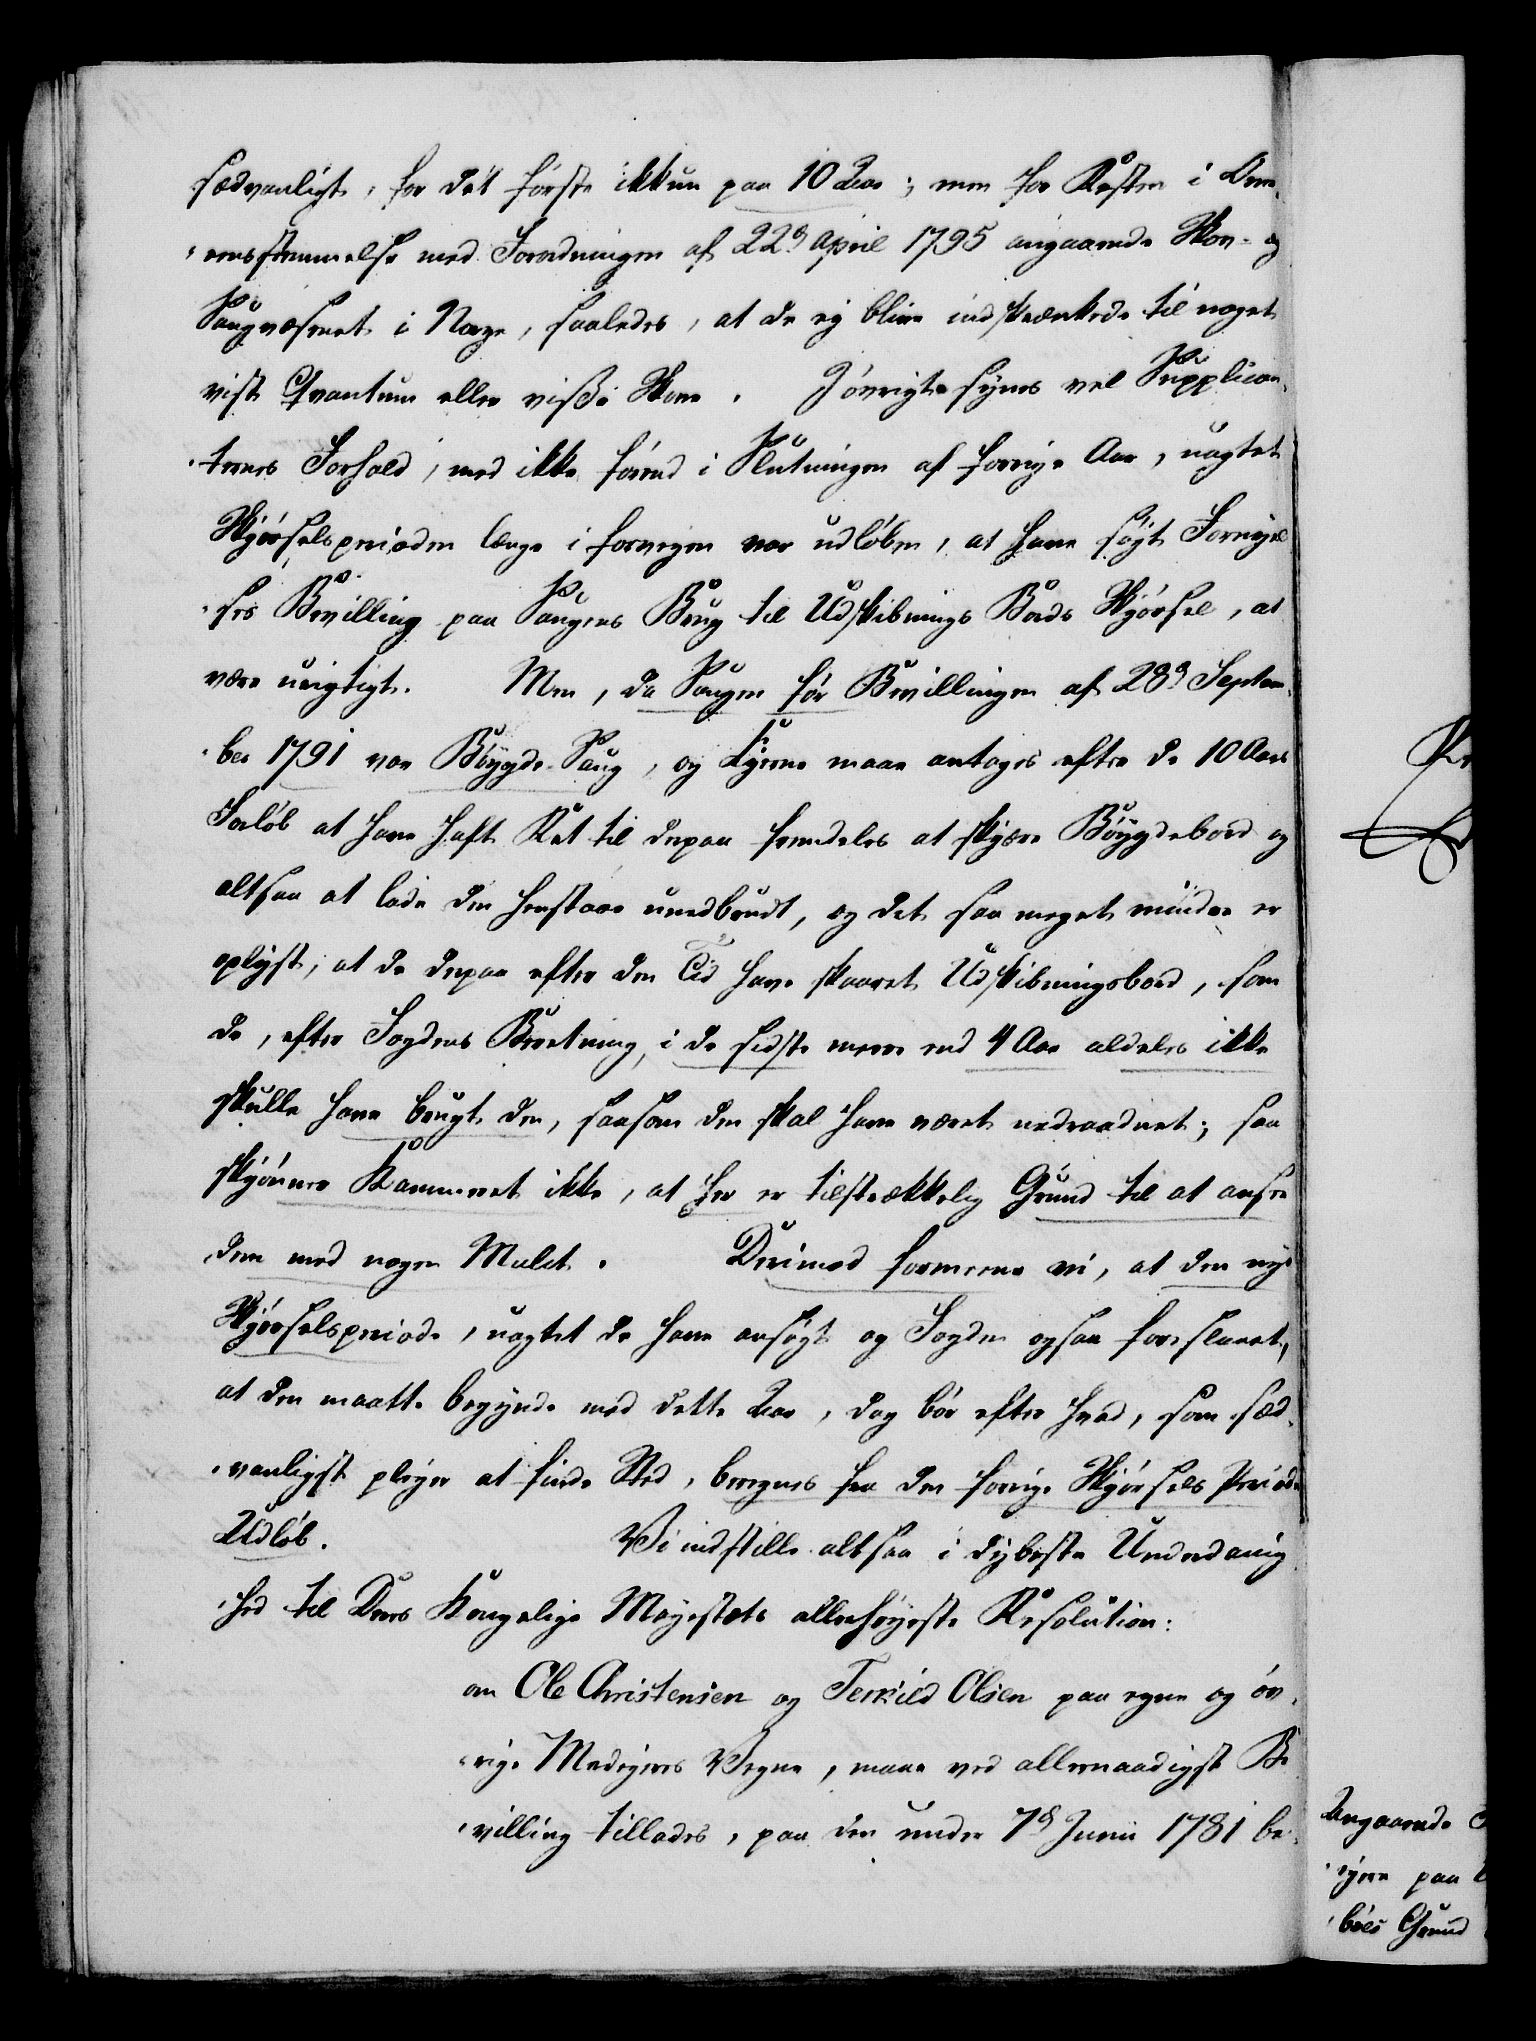 sædvanligt, for det første ikkun paa 10 Aar; men for Resten i Over-
eensstemmelse med Forordningen af 22d April 1795 angaaende Skov- og
Saugvæsenet i Norge, saaledes, at de ej blive indskrænkede til noget
vist Qvantum eller visse Skove. Iøvrigt synes vel Supplican-
ternes Forhold, med ikke førend i Slutningen af forrige Aar, uagtet
Skjørselsperioden længe i forvejen var udløben, at have søgt Fornyel-
ses Bevilling paa Saugens Brug til Udskibnings Bords Skjørsel, at
være urigtigt. Men, da Saugen før Bevillingen af 28d Septem-
ber 1791 var Bøygde-Saug, og Ejerne maae antages efter de 10 Aars
Forløb at have haft Ret til derpaa fremdeles at skjære Bøygdebord og
altsaa at lade den henstaae unedbrudt, og det saa meget mindre er
oplyst, at de derpaa efter den Tid have skaaret Udskibningsbord, som
de, efter Fogdens Beretning, i de sidste meere end 4 Aar aldeles ikke
skulle have brugt den, saasom den skal have været nedraadnet; saa
skjønner Kammeret ikke, at her er tilstrækkelig Grund til at ansee
dem med nogen Mulct. Derimod formeene vi, at den nye
Skjørselsperiode, uagtet de have ansøgt og Fogden ogsaa foreslaaet,
at den maatte begynde med dette Aar, dog bør efter hvad, som sæd-
vanligst plejer at finde Sted, beregnes fra den forrige Skjørsels Periodes
Udløb. Vi indstille altsaa i dybeste Underdanig-
hed til Deres Kongelige Majestæts allerhøjeste Resolution:
om Ole Christensen og Terkild Olsen paa egne og øv-
rige Medejeres Vegne, maae ved allernaadigst Be-
villing tillades, paa den under 7d Junii 1781 be-
Angaaende
ejere paa
bøes Grund